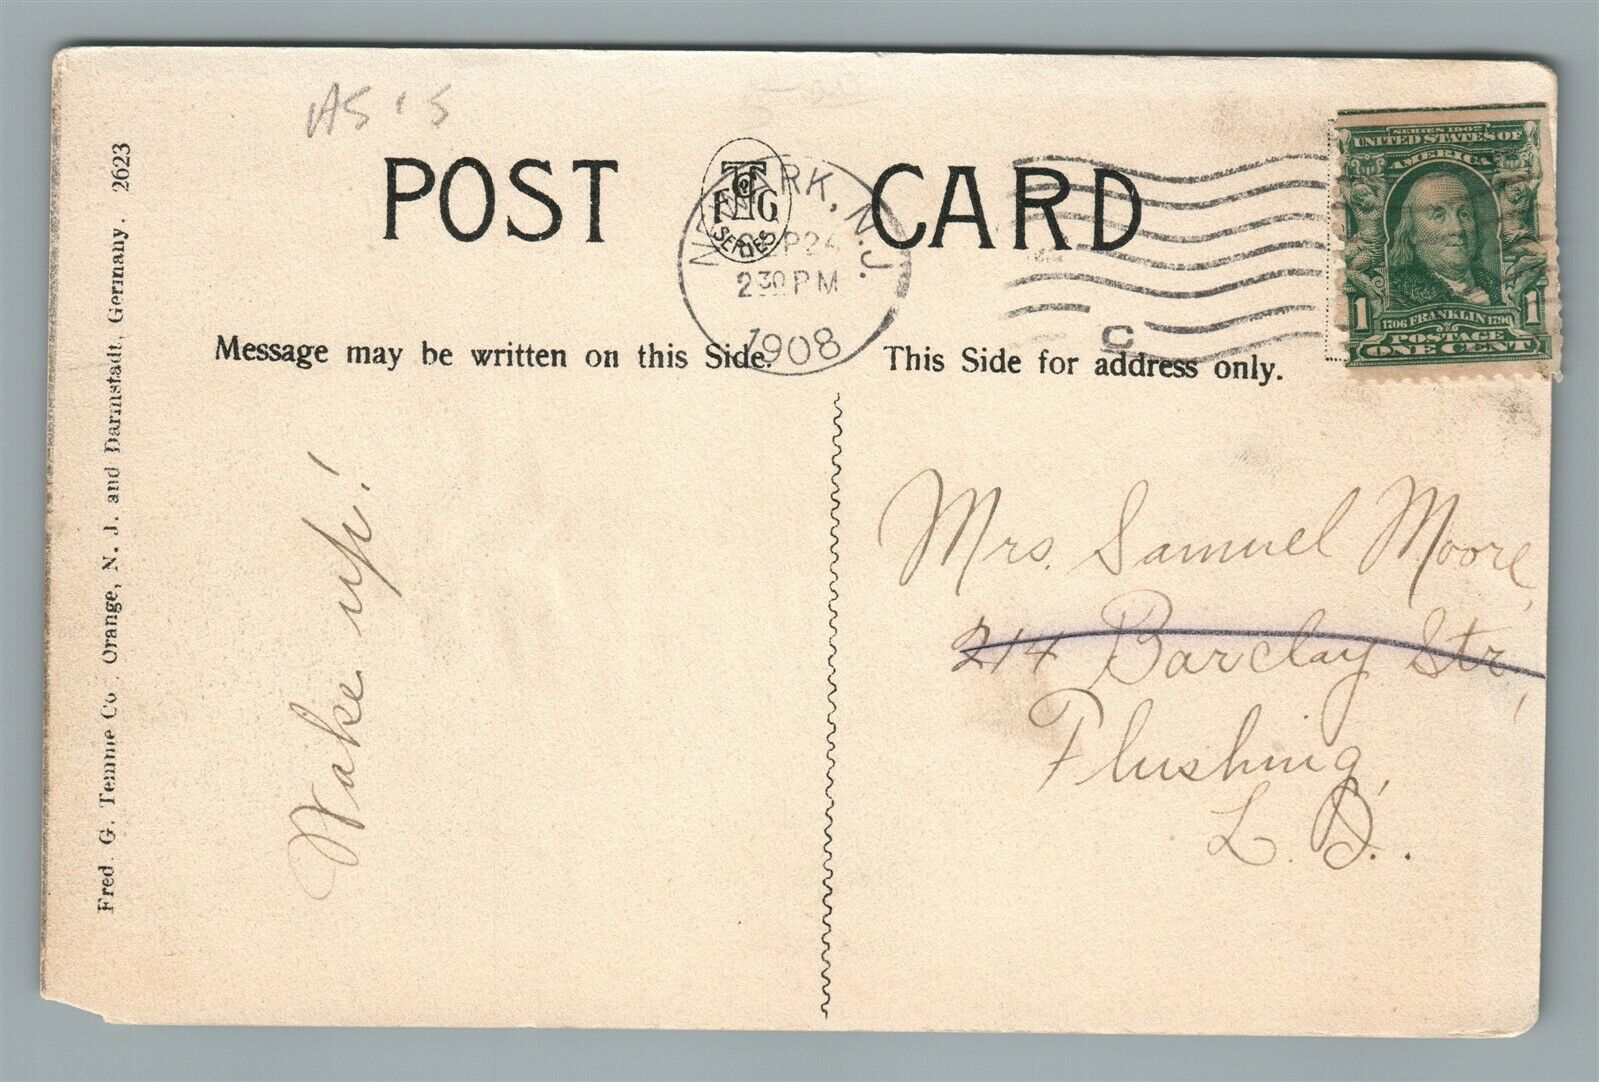 AS 'S
POST CARD
FTG
Co
SERIES
NEWARK, N.J.
SEP 24
2 30 PM
1908
C
SERIES 1902
UNITED STATES OF
AMERICA
1 1
1706 FRANKLIN 1790
POSTAGE
ONE CENT
Message may be written on this Side.
This Side for address only.
Fred. G. Temme Co. Orange, N. J. and Darmstadt, Germany. 2623
Wake up!
Mrs. Samuel Moore,
214 Barclay Str,
Flushing,
L.